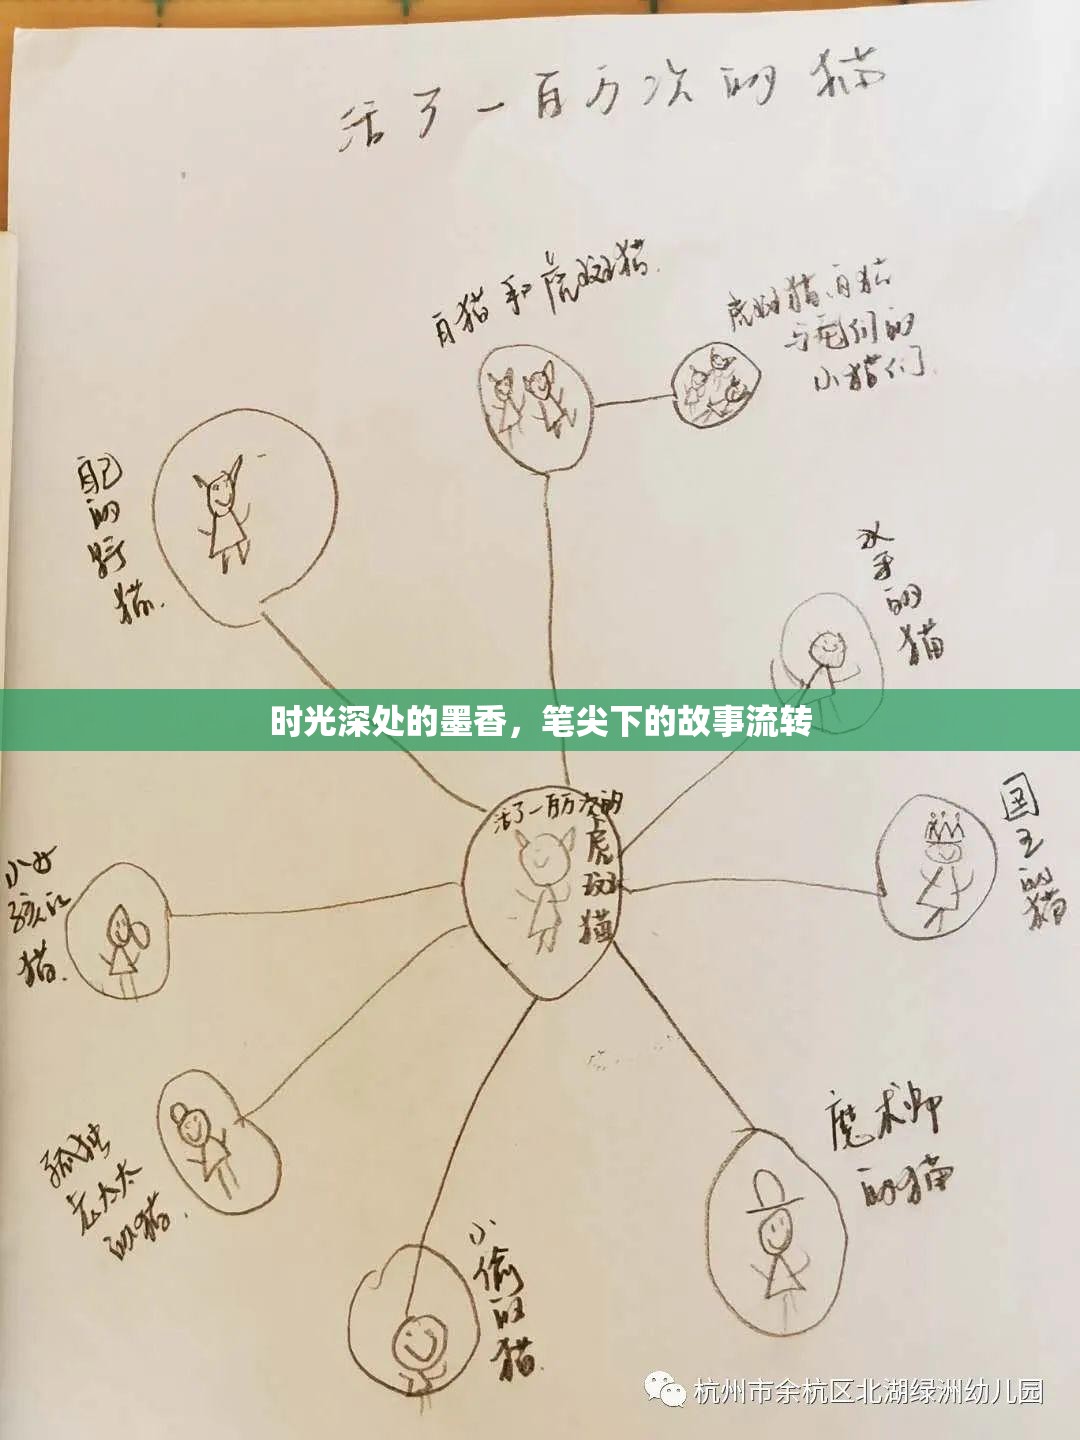 活了一百万次的猫
白猫和虎斑猫.
虎斑猫、白猫
与它们的
小猫们.
自己的野猫.
水手的猫
时光深处的墨香，笔尖下的故事流转
活了一百万次的
虎斑猫
国王的猫
小女孩的猫.
魔术师
的猫
孤独
老太太
的猫.
小偷的猫.
杭州市余杭区北湖绿洲幼儿园